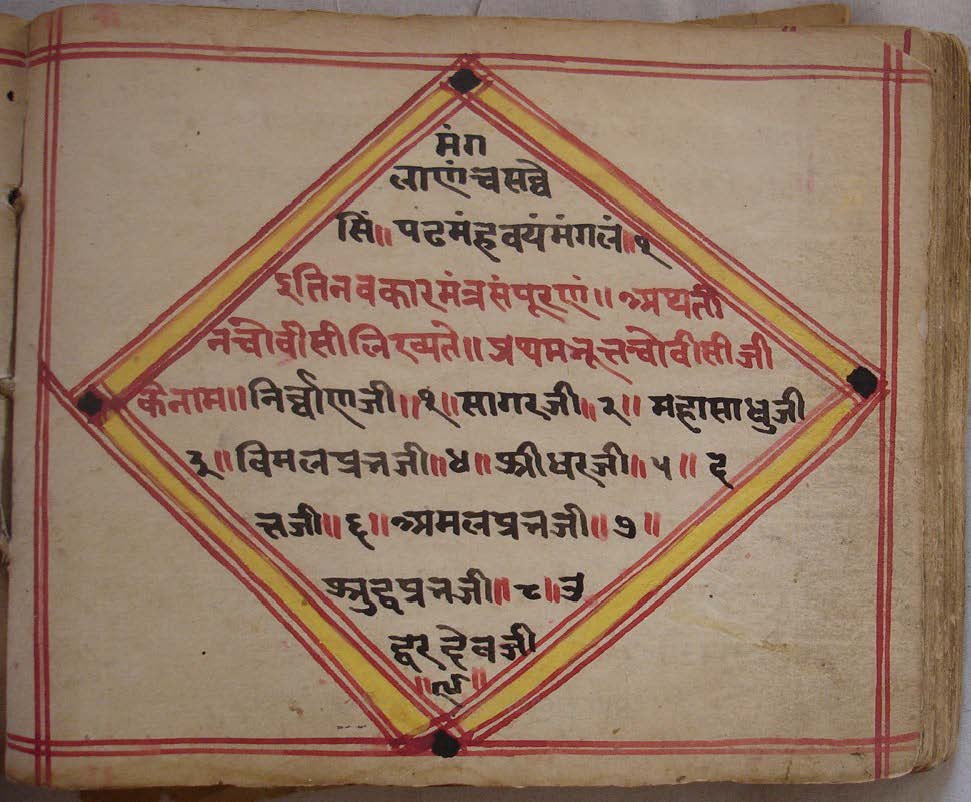 मंग
लाणंचसव्वे
सिं॥ पढमंहवयंमंगलं॥१
इतिनवकारमंत्रसंपूरणं॥ अथती
नचोवीसीलिख्यते॥ प्रथमभूतचोवीसीजी
केनाम॥ निर्व्वाणजी॥१॥सागरजी॥२॥ महासाधुजी
३॥विमलप्रभजी॥४॥श्रीधरजी॥५॥ द
त्तजी॥६॥अमलप्रभजी॥७॥
श्रुद्धप्रभजी॥८॥उ
द्धरदेवजी
॥९॥